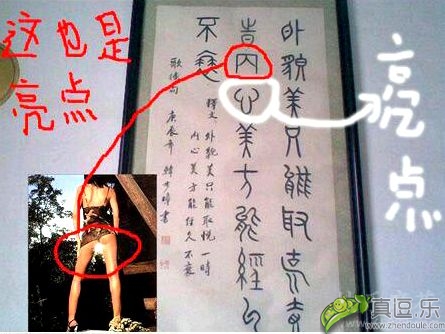 这也是
亮点
亮点
外貌美只能取悦壹
時内心美方能經久
不衰
釋文 外貌美只能取悦一時
内心美方能經久不衰
歌德句 庚辰年 韓 書
真逗.乐
www.zhendoule.com